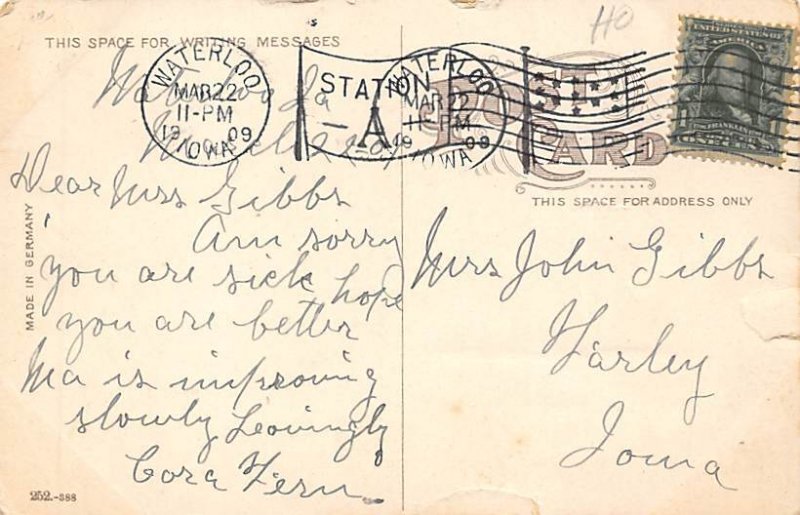 HO
THIS SPACE FOR WRITING MESSAGES
WATERLOO
MAR 22
11-PM
1909
IOWA
STATION
A
WATERLOO
MAR 22
11-PM
1909
IOWA
POST CARD
UNITED STATES OF AMERICA
FRANKLIN
THIS SPACE FOR ADDRESS ONLY
Waterloo Ia
Dear Mrs Gibbs
Am sorry
you are sick hope
you are better
Ma is improving
slowly Leovingly
Cora Fern
Mrs John Gibbs
Farley
Iowa
MADE IN GERMANY
252.-388